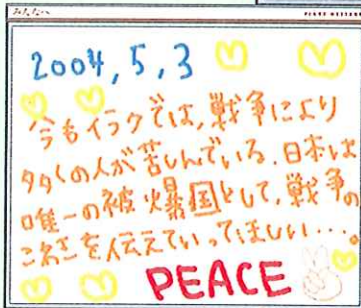 みなさんへ
2004,5,3
今もイラクでは、戦争により
多くの人が苦しんでいる。日本は
唯一の被爆国として、戦争の
こわさを伝えていってほしい…。
PEACE